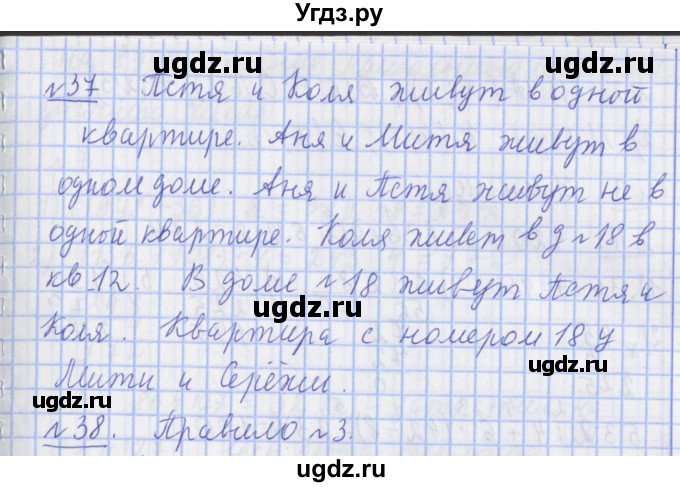 Угдз.ру
ugdz.ru ugdz.ru
№37 Петя и Коля живут в одной
квартире. Аня и Митя живут в
ugdz.ru ugdz.ru
одном доме. Аня и Петя живут не в
одной квартире. Коля живет в д №18 в
кв 12. В доме №18 живут Петя и
ugdz.ru
Коля. Квартира с номером 18 у
ugdz.ru
Мити и Серёжи.
ugdz.ru ugdz.ru
№38. Правило №3.
ugdz.ru